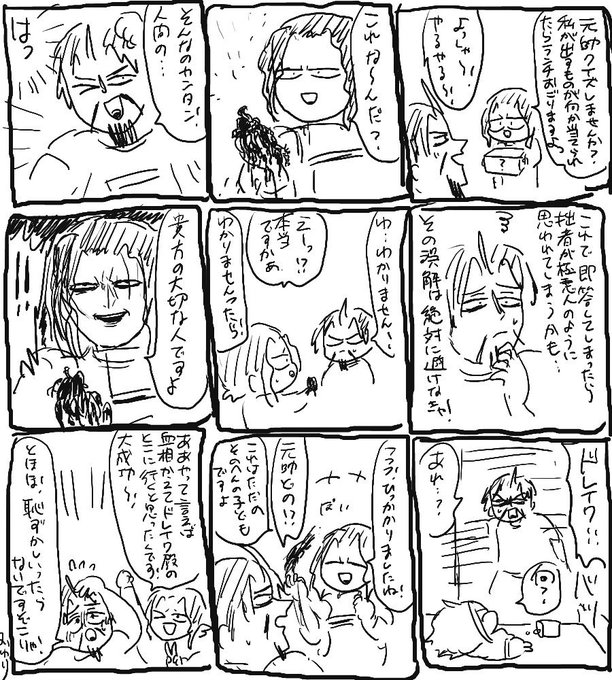 元帥クイズしませんか?
私が出すものが何か当てられ
たらランチおごりますよっ
よっしゃ〜!
やるやる〜!
?
これな〜んだっ?
そんなのカンタン!
人間の…
はっ
ここで即答してしまったら
拙者が極悪人のように
思われてしまうかも…
その誤解は絶対に避けなきゃ!
わ…わかりません〜!
えーっ!?
本当
ですかあ
わかりませんったら!
貴方の大切な人ですよ
ドレイク!!
バッ
あれ…?
フフ、ひっかかりましたね!
ばい
元帥どの!?
これはただの
そのへんの子ども
ですよ
ああやって言えば
血相かえてドレイク殿の
とこに行くと思ったんです!
大成功〜!
とほほ、恥ずかしいったら
ないですぞこりゃ!